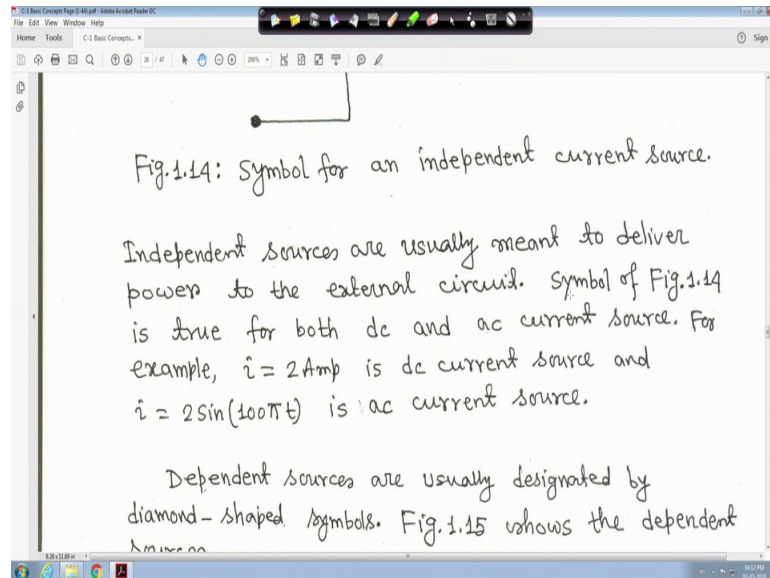 C-1 Basic Concepts Page (1-44).pdf - Adobe Acrobat Reader DC
File Edit View Window Help
Home Tools C-1 Basic Concepts... × Sign
26 / 47 200%
Fig.1.14: Symbol for an independent current source.
Independent sources are usually meant to deliver
power to the external circuit. Symbol of Fig.1.14
is true for both dc and ac current source. For
example, i = 2 Amp is dc current source and
i = 2 Sin(100πt) is ac current source.
Dependent sources are usually designated by
diamond-shaped symbols. Fig.1.15 shows the dependent
sources
8.26 x 11.69 in
04:12 PM